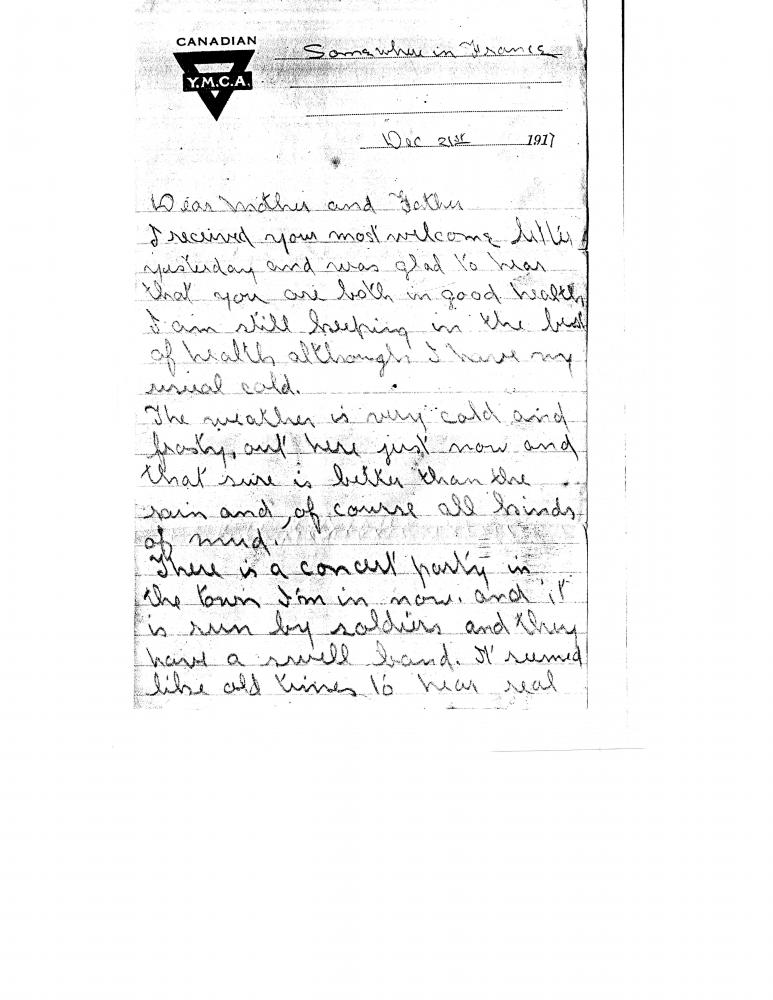 CANADIAN
Y.M.C.A.
Somewhere in France
Dec 21st 1917
Dear Mother and Father
I received your most welcome letter
yesterday and was glad to hear
that you are both in good health
I am still keeping in the best
of health although I have my
usual cold.
The weather is very cold and
frosty, out here just now and
that sure is better than the
rain and, of course all kinds
of mud.
There is a concert party in
the town I'm in now. and it
is run by soldiers and they
have a swell band. It seemed
like old times to hear real